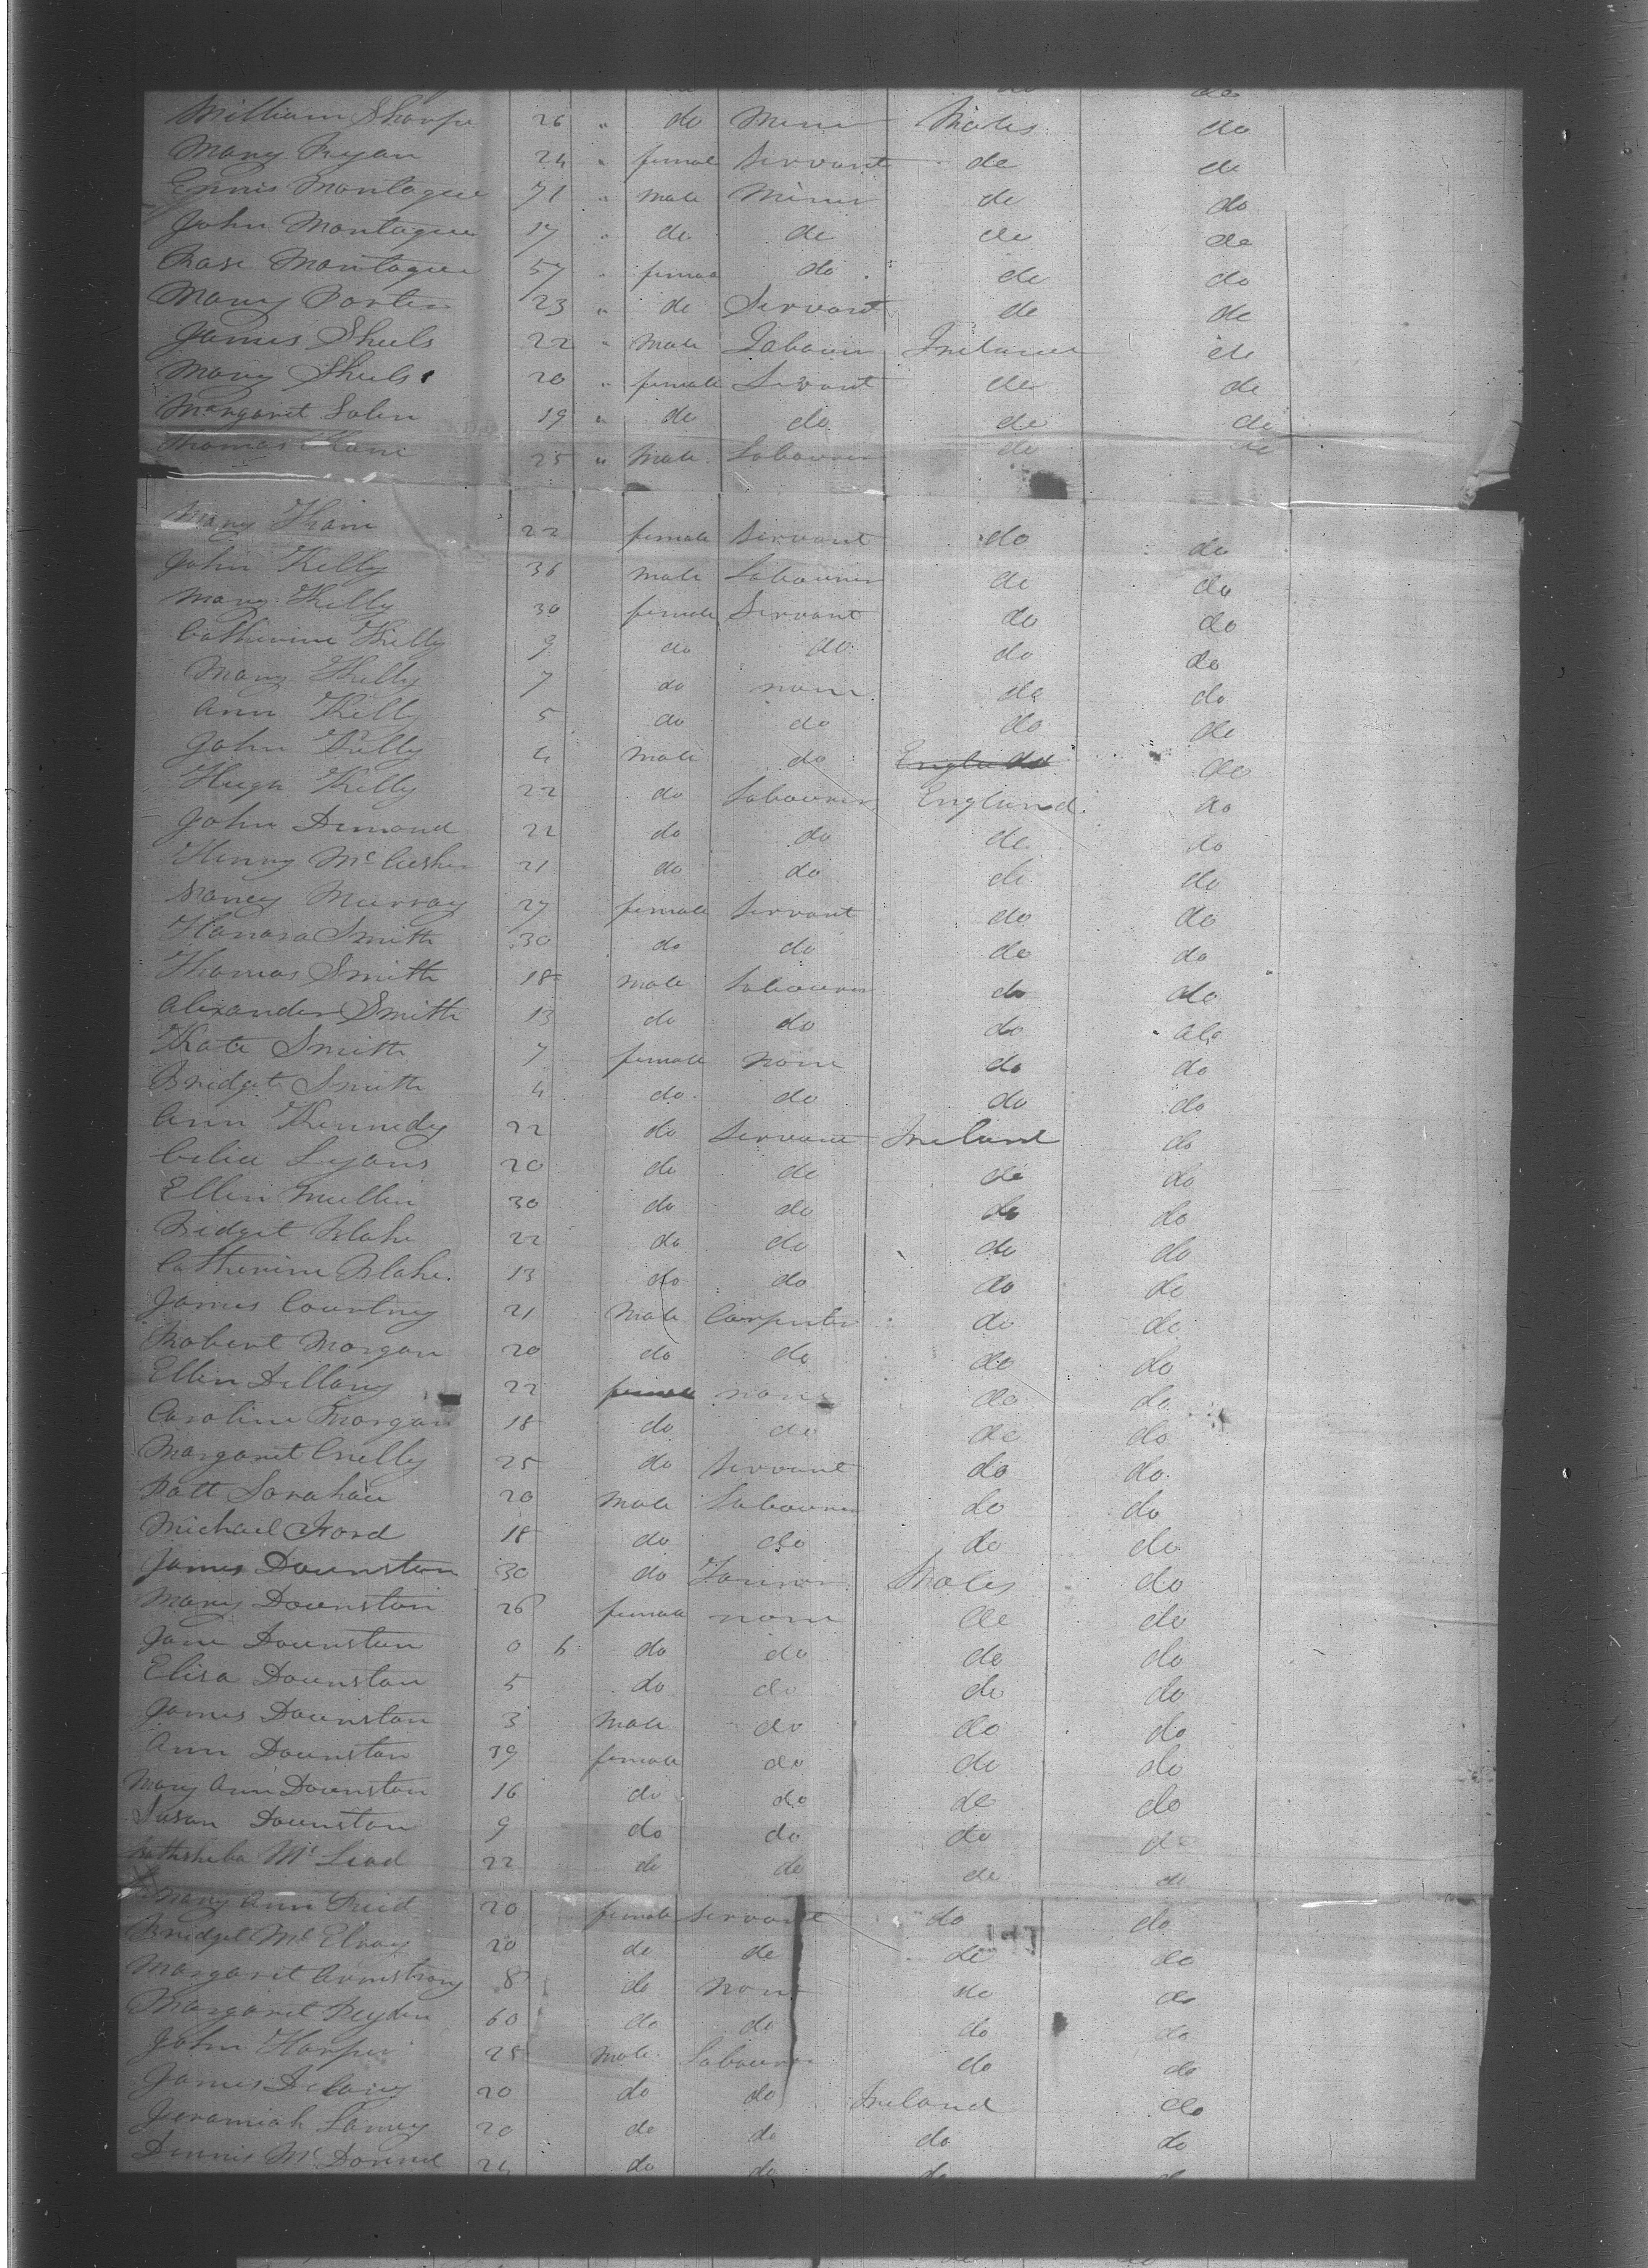 do do
William Sharpe 26 " do Miner Wales do
Mary Ryan 24 " female Servant do do
Ennis Montague 71 " Male Miner do do
John Montague 17 " do do do do
Rose Montague 57 " female do do do
Mary Porter 23 " do Servant do do
James Sheils 22 " Male Labourer Ireland do
Mary Sheils 20 " female Servant do do
Margaret 19 " do do do do
Thomas Kane 25 " Male Labourer do do
Mary Kane 22 female Servant do do
John Kelly 36 Male Labourer do do
Mary Kelly 30 female Servant do do
Catherine Kelly 9 do do do do
Mary Kelly 7 do none do do
Ann Kelly 5 do do do do
John Kelly 4 Male do do
Hugh Kelly 22 do Labourer England do
John Dimond 22 do do do do
Henry Mc 21 do do do do
Nancy Murray 27 female Servant do do
Hanora Smith 30 do do do do
Thomas Smith 18 Male Labourer do do
Alexander Smith 13 do do do do
Kate Smith 7 female none do do
Bridget Smith 4 do do do do
Ann Kennedy 22 do Servant Ireland do
Celia Lyons 20 do do do do
Ellen Mullin 30 do do do do
Bridget Blake 22 do do do do
Catherine Blake 13 do do do do
James Courtney 21 Male Carpenter do do
Robert Morgan 20 do do do do
Ellen Dillany 22 female none do do
Caroline Morgan 18 do do do do
Margaret Crelly 25 do Servant do do
Patt 20 Male Labourer do do
Michael Ford 18 do do do do
James Dounston 30 do Wales do
Mary Dounston 26 female none do do
Jane Dounston 0 6 do do do do
Elisa Dounston 5 do do do do
James Dounston 3 Male do do do
Ann Dounston 39 female do do do
Mary Ann Dounston 16 do do do do
Susan Dounston 9 do do do do
Bathsheba Mc Leod 22 do do do do
Mary Ann Reid 20 female Servant do do
Bridget Mc Elroy 20 do do do do
Margaret Armstrong 8 do none do do
Margaret 60 do do do do
John Harper 25 Male Labourer do do
James Delany 20 do do Ireland do
Jeramiah 20 do do do do
Dennis Mc Donnel 24 do do do do